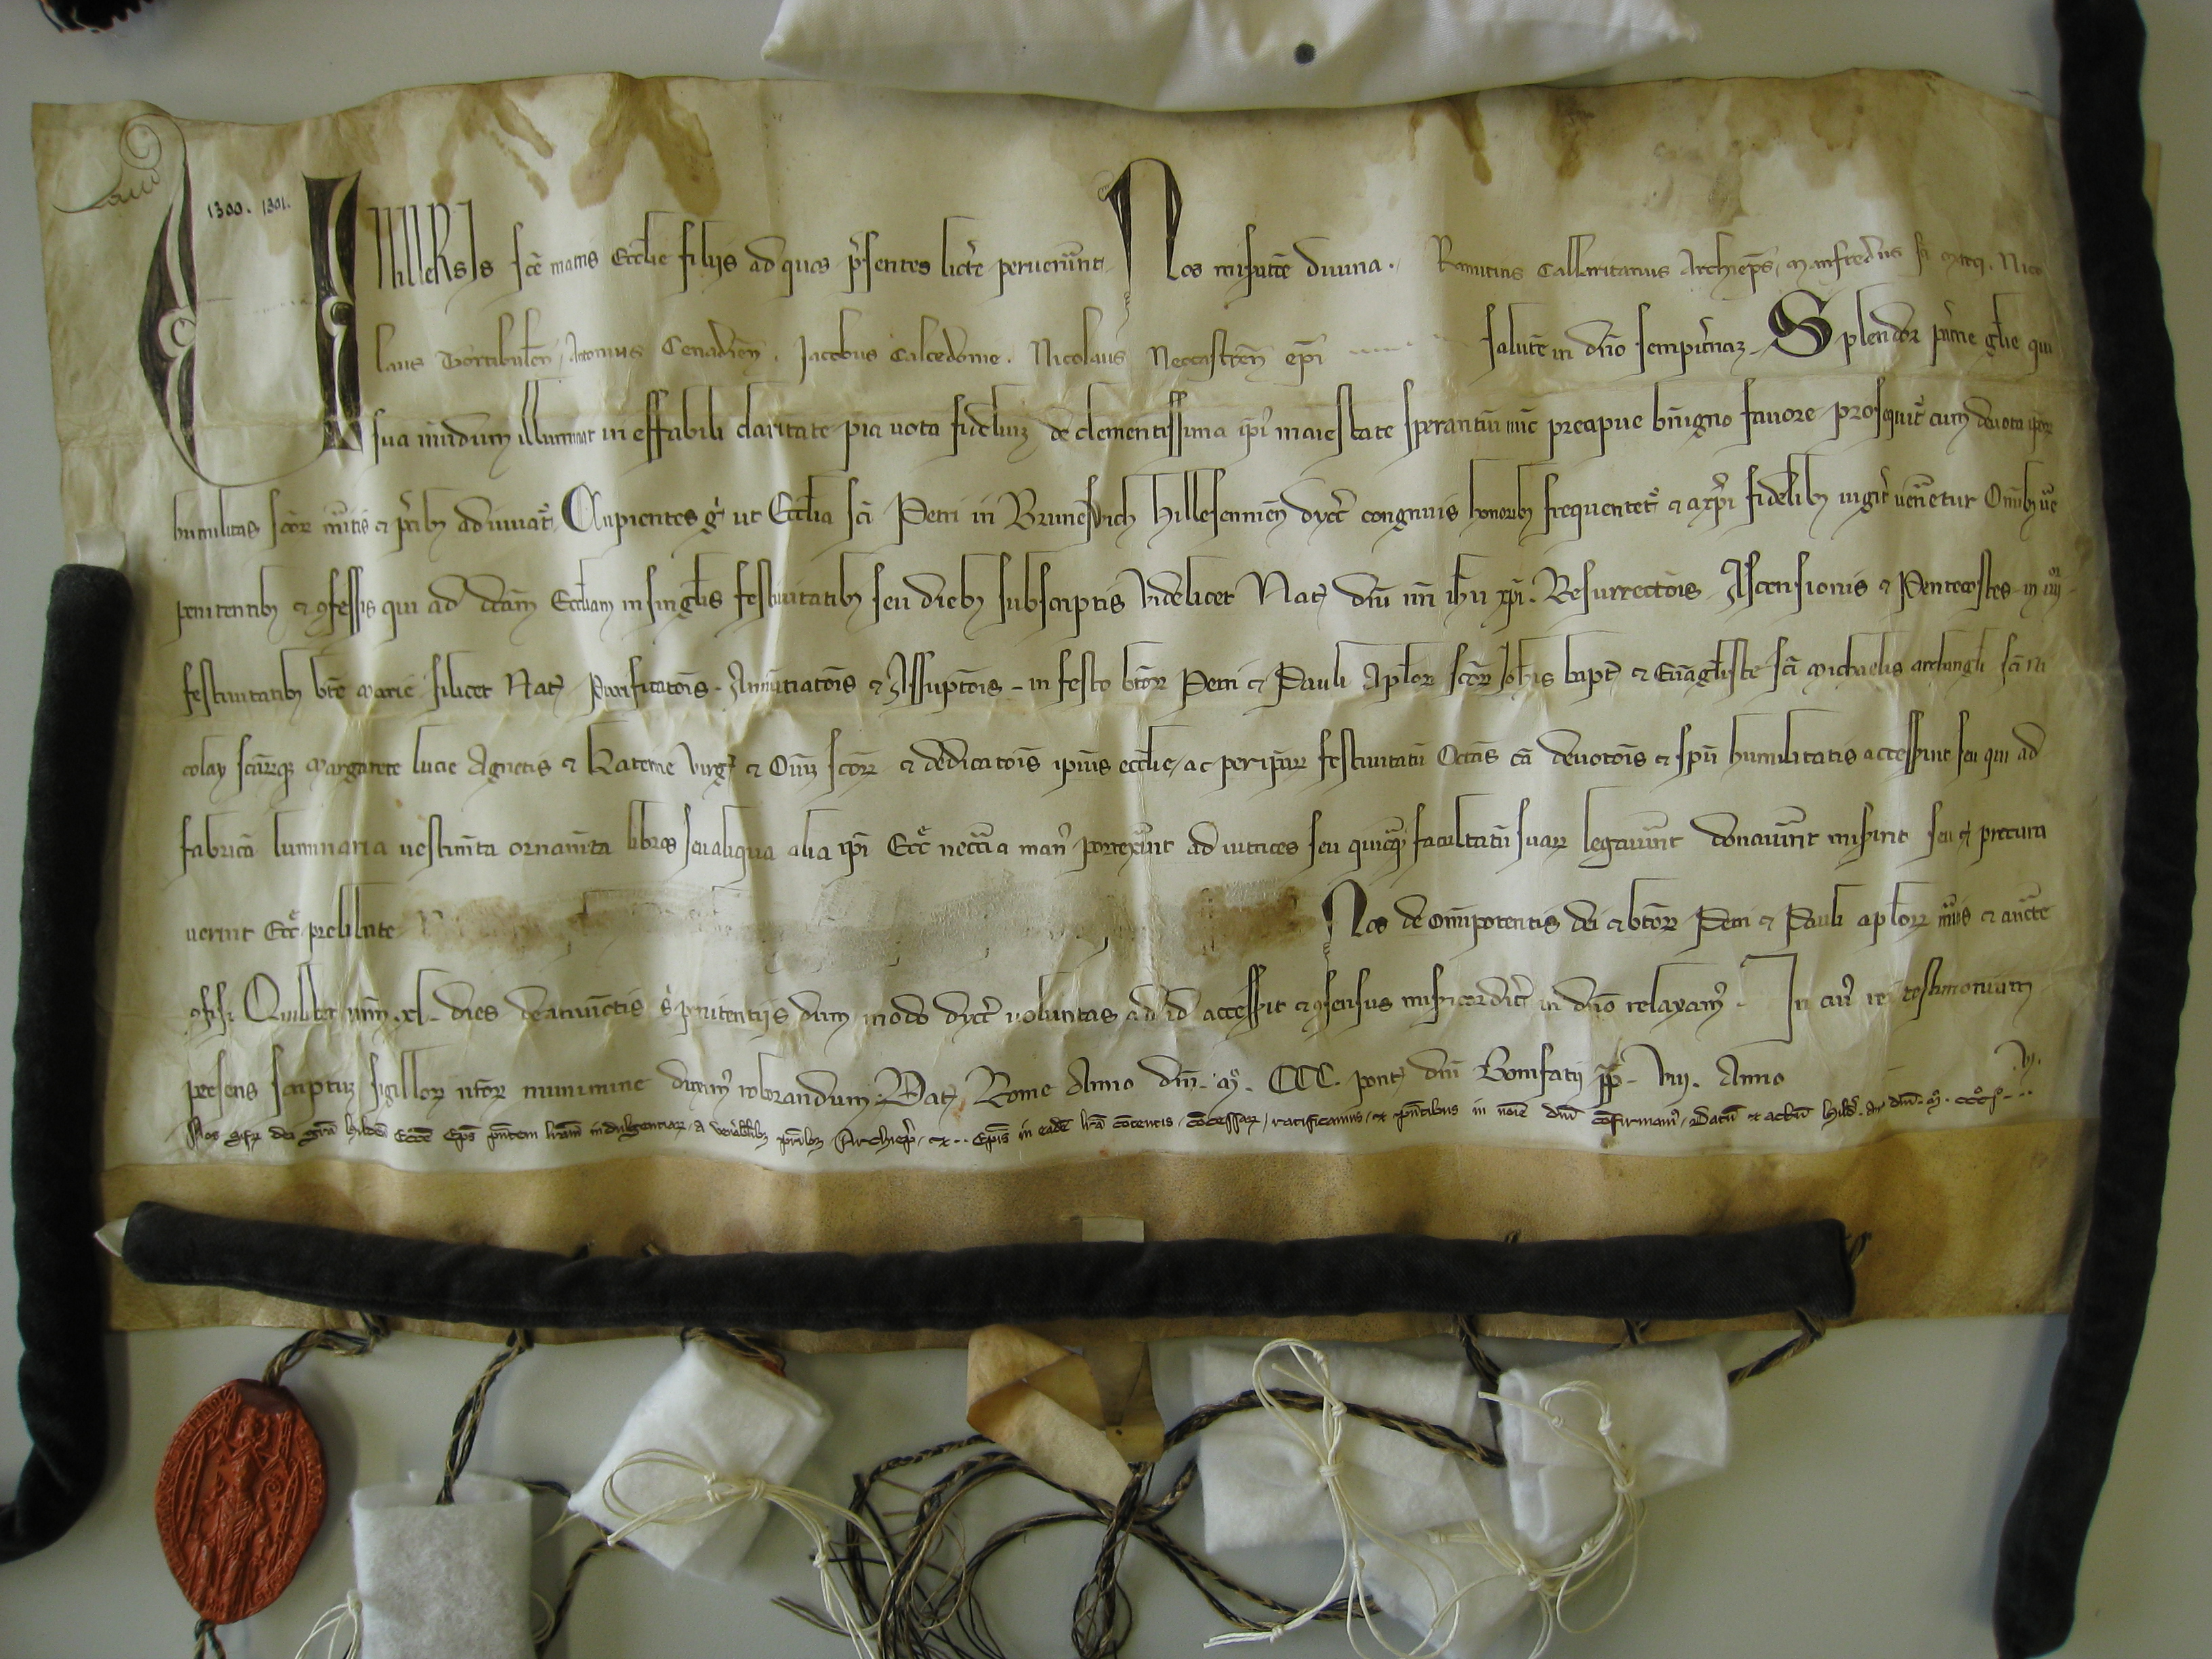 1300. 1301.
UNIUERSIS sce matris Ecclie filiis ad quos psentes littere peruenerunt Nos miseratione diuina. Ranutius Callaritanus Archieps, Manfredus sci Marci. Nico
laus Tortibulen, Antonius Cenadien. Jacobus Calcedonie. Nicolaus Neocastren epi salute in dno sempiternaz. Splendor pterne glie qui
sua mundum illuminat in effabili claritate pia uota fideliuz de clementissima ipi maiestate sperantiu tuc precipue benigno fauore prosequit cum deuota ipor
humilitas scor meritis et pcib adiuuat. Cupientes g ut Ecclia sci Petri in Bruneswich Hillesemmen dyoc congruis honorib frequentet et a xpi fidelib iugit ueneretur Omnib ue
penitentib et 9fessis qui ad dcam Eccliam in singlis festiuitatib seu dieb subscriptis Videlicet Nat dni nri ihu xpi. Resurrectois Ascensionis et Pentecostes in iiij
festiuitatib bte Marie silicet Nat Purificatois. Annutiatois et Assuptois in festo btor Petri et Pauli Aplor scor Johis bapt et Euagliste sci Michaelis archangli sci Ni
colay scarq Margarete lucie Agnetis et Katerine Virg et Oium scor et dedicatois ipius ecclie, ac per ipar festiuitatu Octas ca deuotois et spu humilitatis accesserint seu qui ad
fabrica luminaria uestimta ornamta libros seu aliqua alia ipi Ecce neccia man porrexerint ad iutrices seu quicq facultatu suar legauerint donauerint miserint seu procura
uerint Ecce prelibate Nos de omipotentis dei et btor Petri et Pauli aplor mitis et aucte
9fisi Quilibet nrm .xl. dies de iniunctis s penitentijs dum modo dyoc uoluntas ad id accesserit et 9sensus misericordit in dno relaxam. In cui rei testimonium
presens scriptuz sigillor nror munimine duxim roborandum. Dat Rome Anno dni. M. CCC. pont dni Bonifatij pp. viij. Anno .vj.
Nos dei gra hilden Ecce Eps pntem lram indulgentiar, a venerabilib prib Archiepo, et .. Epis in eade lra cotentis, cocessar, ratificamus, et pntibus in noie dni cofirmam, Datu et actu hild. A dni. M. ccc